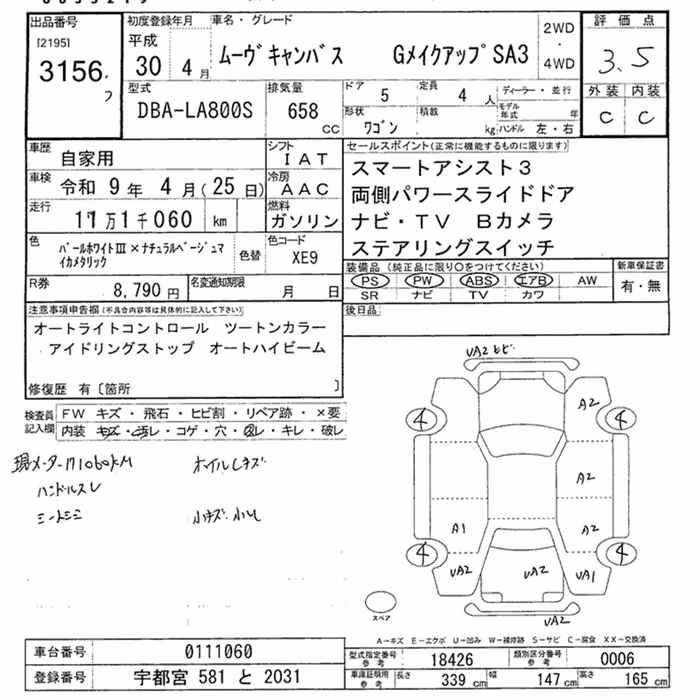 出品番号
[2195]
3156
フ
初度登録年月
平成
30年 4月
車名・グレード
ムーヴキャンバス GメイクアップSA3
2WD
・
4WD
評価点
3.5
外装 内装
C C
型式
DBA-LA800S
排気量
658 CC
ドア 5
定員 4人
形状 ワゴン
積載 kg
ディーラー・並行
モデル年式 年
ハンドル 左・右
車歴
自家用
シフト
IAT
車検
令和 9年 4月 (25日)
冷房
AAC
走行
17万1千060 km
燃料
ガソリン
色
パールホワイトⅢ×ナチュラルベージュマイカメタリック
色替
色コード
XE9
R券
8,790円
名変通知期限
月 日
セールスポイント(正常に機能するものに限ります)
スマートアシスト3
両側パワースライドドア
ナビ・TV Bカメラ
ステアリングスイッチ
装備品 (純正品に限り○をつけてください)
PS PW ABS エアB AW
SR ナビ TV カワ
新車保証書
有・無
後日品
注意事項申告欄(不具合内容等は具体的に記入して下さい)
オートライトコントロール ツートンカラー
アイドリングストップ オートハイビーム
修復歴 有〔箇所 〕
検査員記入欄
FW キズ・飛石・ヒビ割・リペア跡・×要
内装 キズ・汚レ・コゲ・穴・スレ・キレ・破レ
現メーター171060KM
ハンドルスレ
オイルLキズ
小キズ・小凹
VA2 ヒビ
4
A2
4
A2
A1
A2
4
4
VA2
VA2
VA1
VA2
スペア
A-キズ E-エクボ U-凹み W-補修跡 S-サビ C-腐食 XX-交換済
車台番号 0111060
登録番号 宇都宮 581 と 2031
型式指定番号参考 18426
類別区分番号参考 0006
車庫証明用参考 長さ 339 cm 幅 147 cm 高さ 165 cm